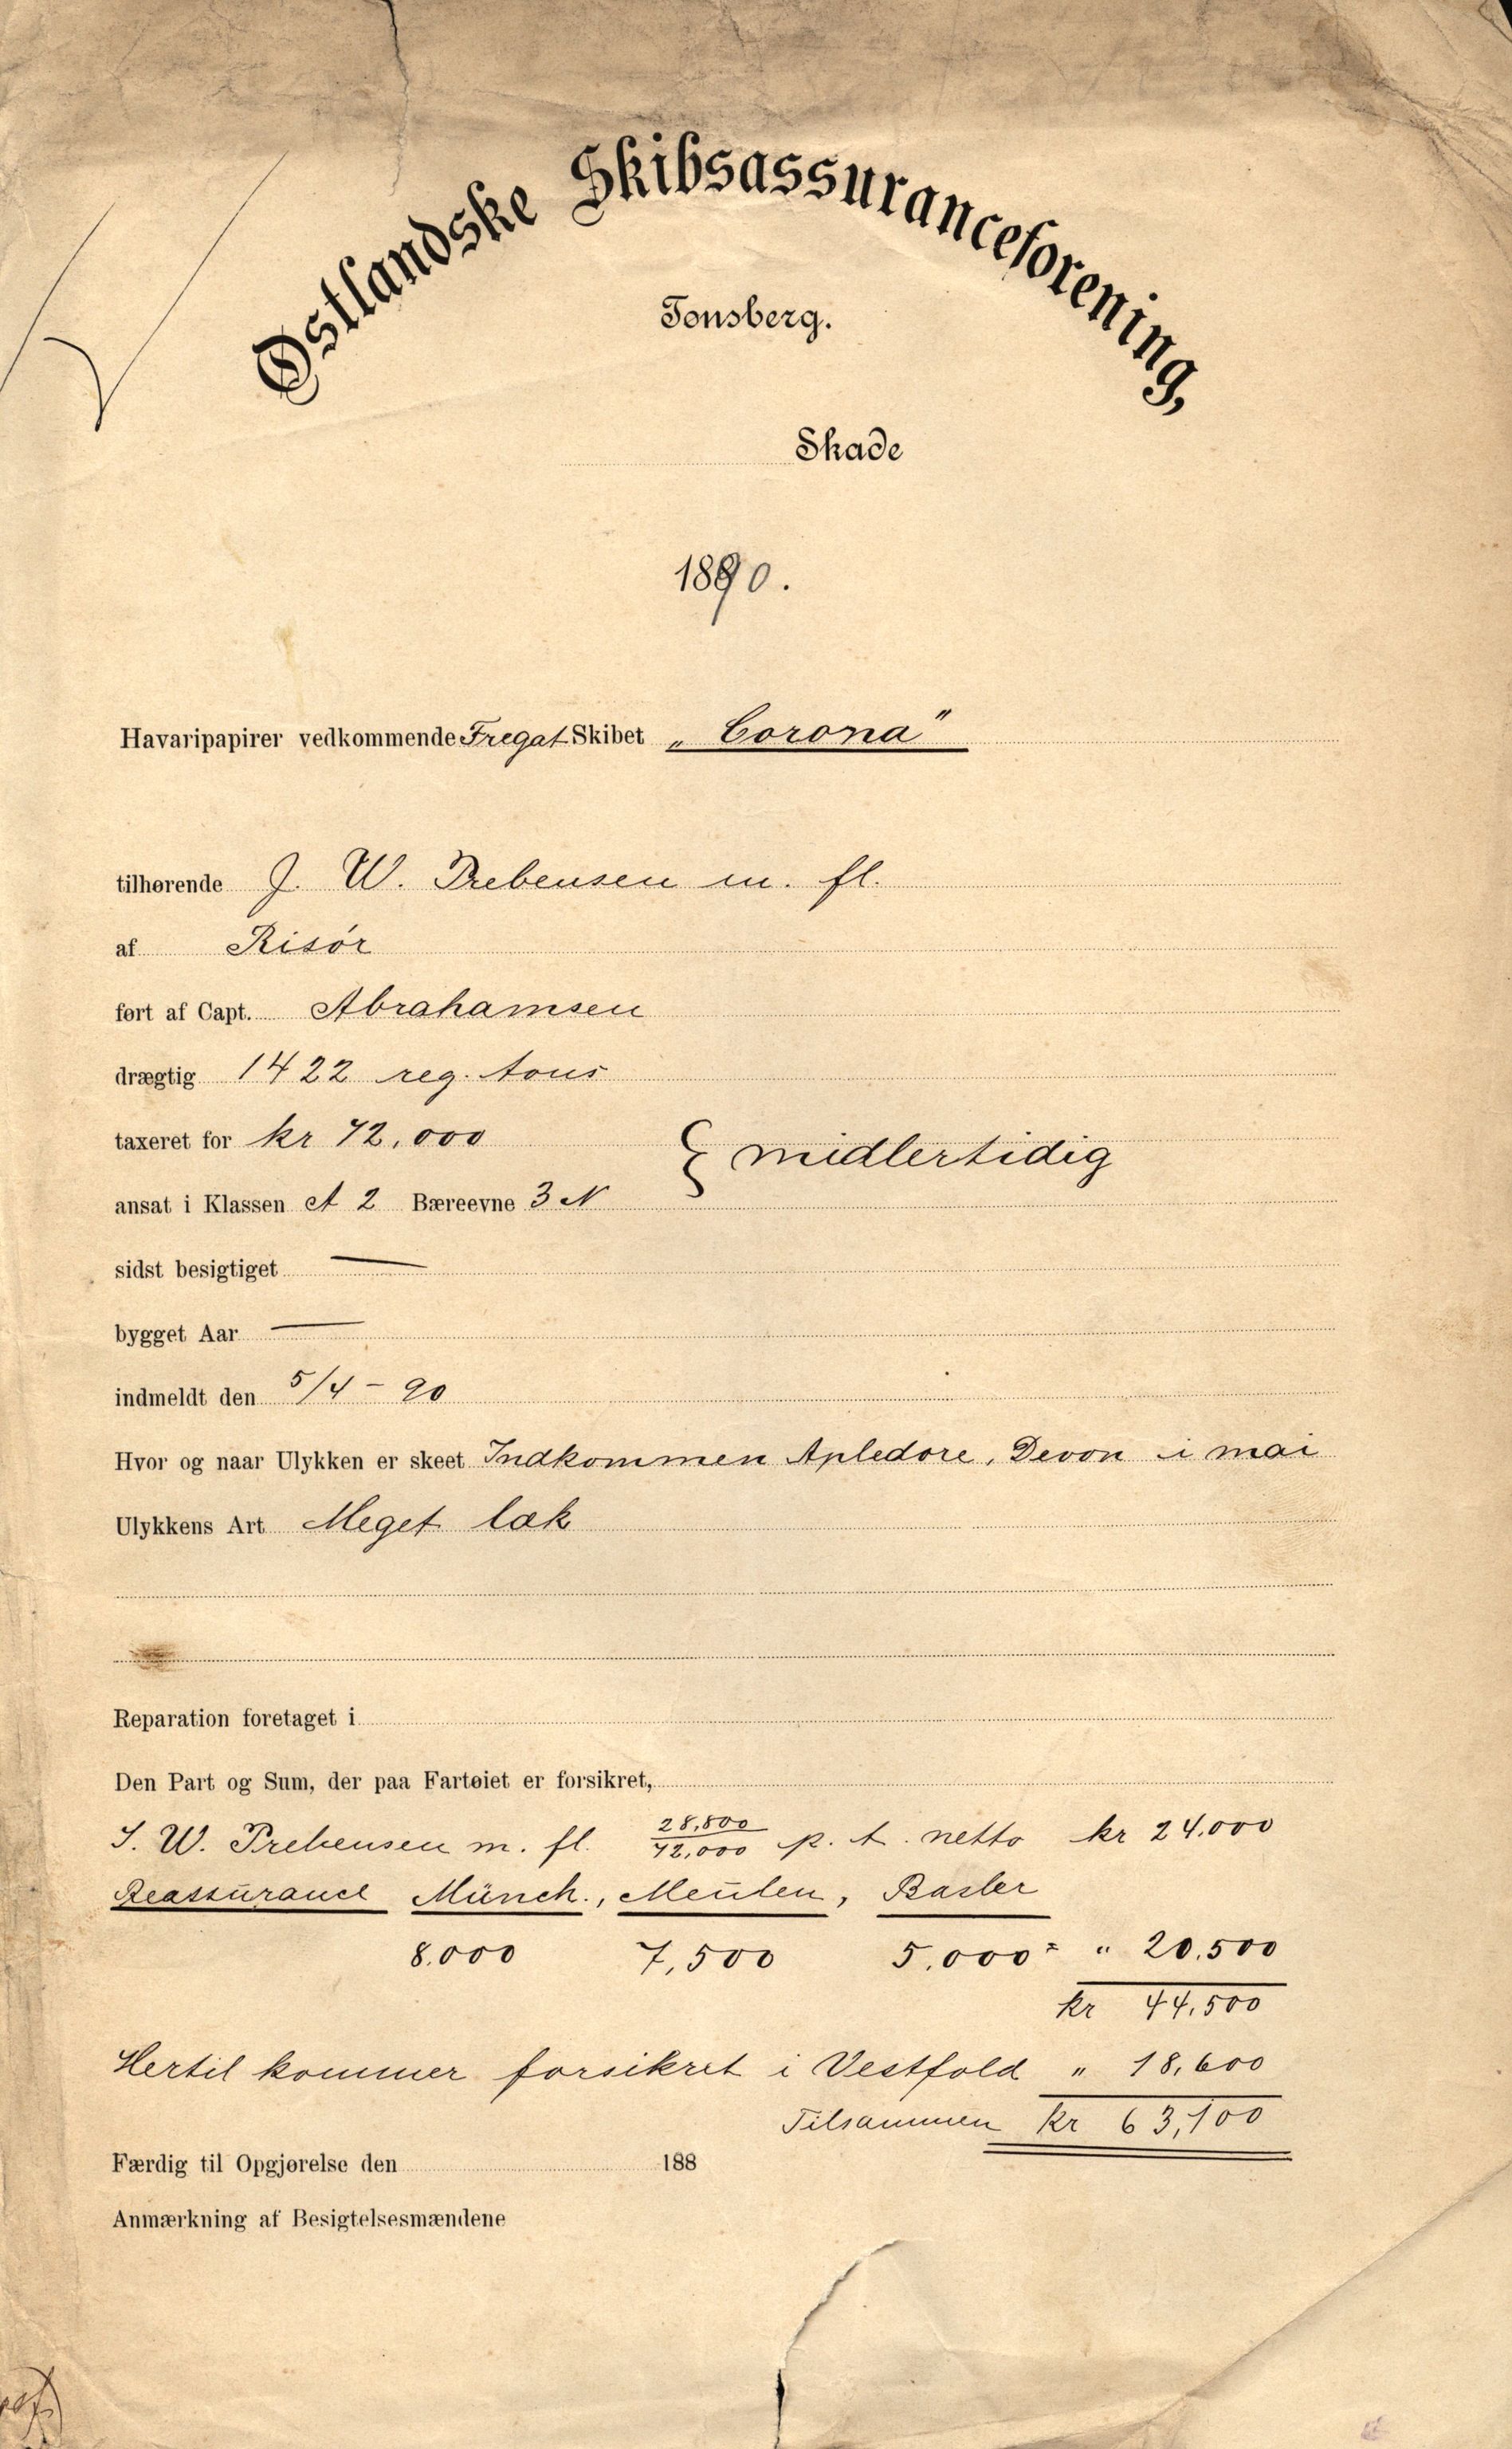 Østlandske Skibsassuranceforening,
Tønsberg.
Skade
1890.
Havaripapirer vedkommende Fregat Skibet „Corona"
tilhørende J. W. Prebensen m. fl.
af Risór
ført af Capt. Abrahamsen
drægtig 1422 reg. tons
taxeret for kr 72,000
{ midlertidig
ansat i Klassen A 2 Bæreevne 3 N
sidst besigtiget —
bygget Aar —
indmeldt den 5/4 - 90
Hvor og naar Ulykken er skeet Indkommen Apledore, Devon i mai
Ulykkens Art Meget læk
Reparation foretaget i
Den Part og Sum, der paa Fartøiet er forsikret,
J. W. Prebensen m. fl. 28,800/72,000 p. t. netto kr 24.000
Reassurance Münch., Meulen, Basler
8.000 7,500 5.000 = " 20.500
kr 44,500
Hertil kommer forsikret i Vestfold " 18,600
Tilsammen kr 63,100
Færdig til Opgjørelse den 188
Anmærkning af Besigtelsesmændene